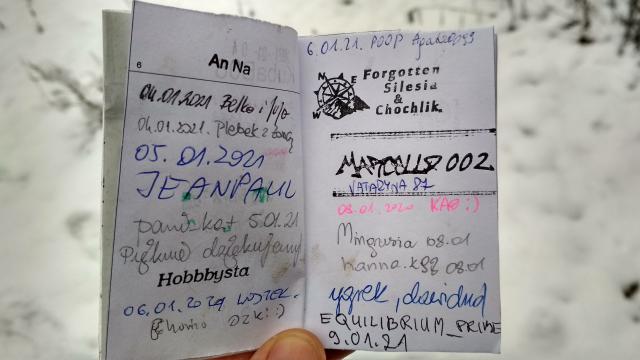 6
An Na
04.01.2021 Belko i
04.01.2021. Plebek z żoną
05.01.2021
JEANPAUL
5.01.21
Pięknie dziękujemy
Hobbbysta
06.01.2021
DZK :)
6.01.21. POOP
N
E
W
Forgotten
Silesia
&
Chochlik.
MARCELLO 002
KATARZYNA 87
08.01.2020 KAO :)
08.01
hanna.k 08.01
ygrek, dawidnd
EQUILIBRIUM_PRIME
9.01.21